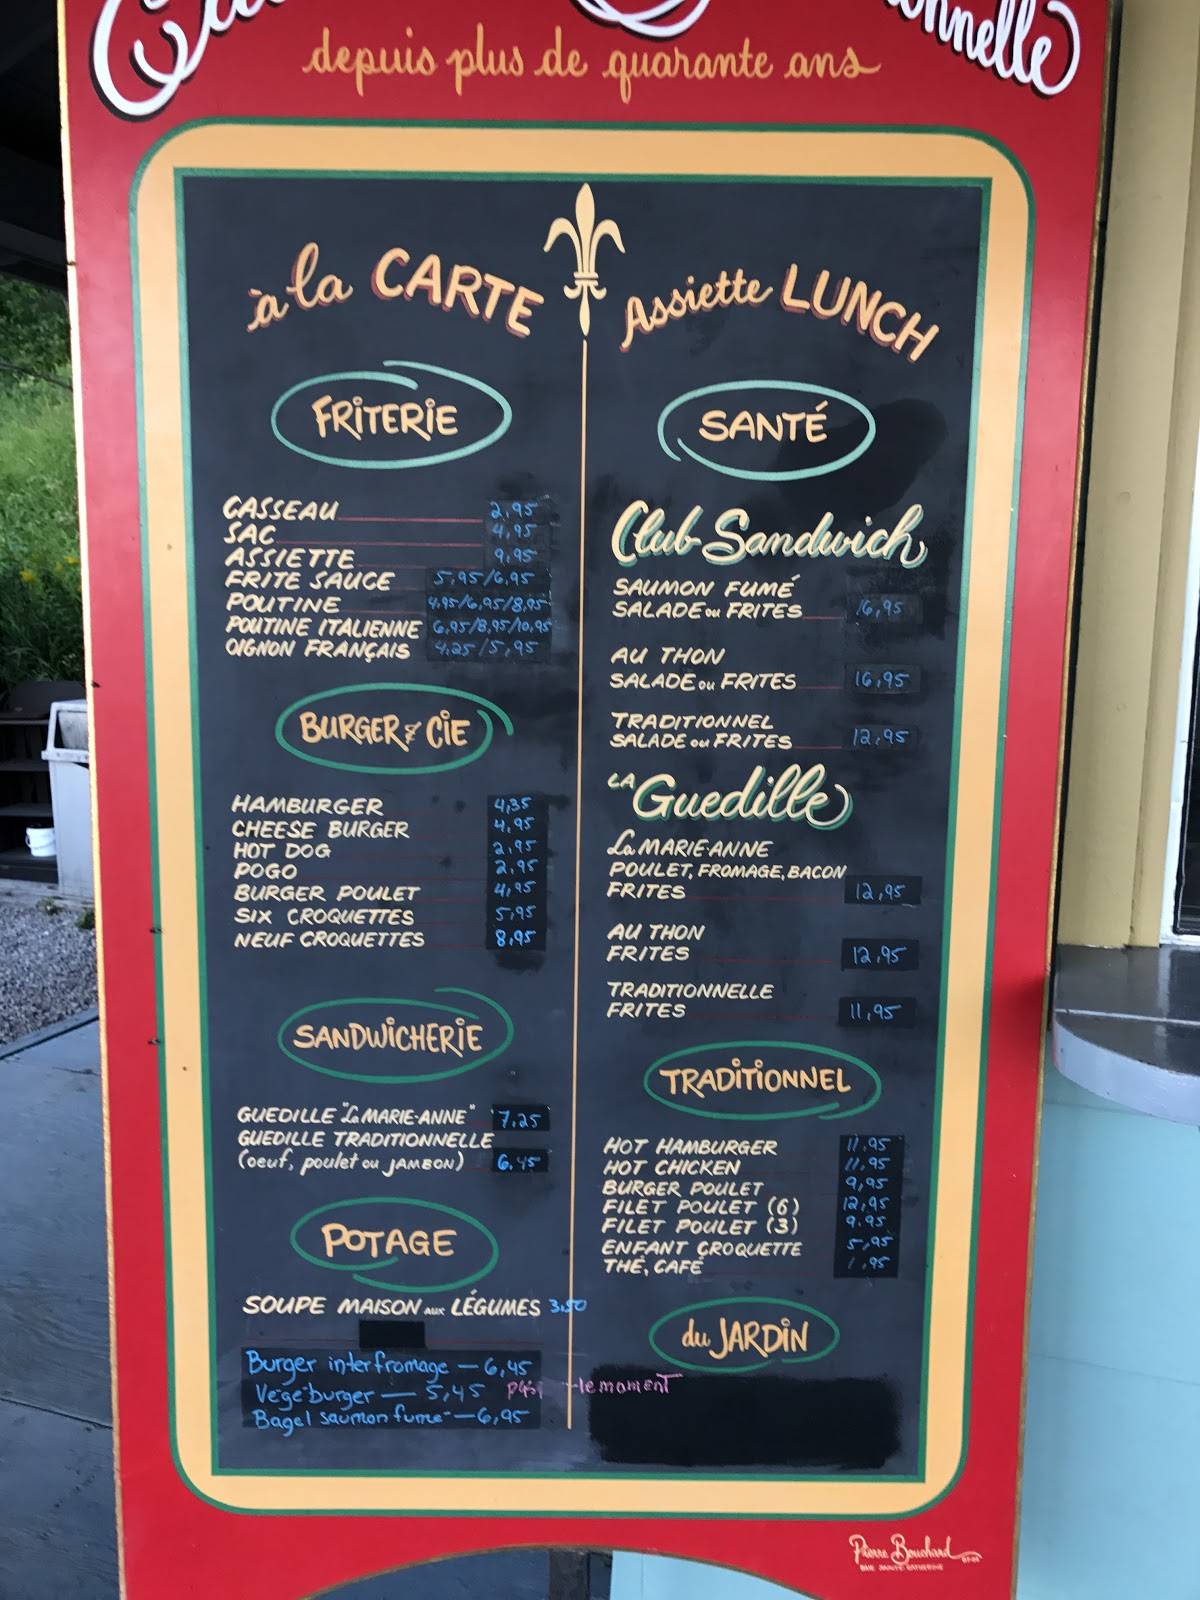 onnelle
depuis plus de quarante ans
à la CARTE
FRITERIE
CASSEAU 2,95
SAC 4,95
ASSIETTE 9,95
FRITE SAUCE 5,95/6,95
POUTINE 4,95/6,95/8,95
POUTINE ITALIENNE 6,95/8,95/10,95
OIGNON FRANÇAIS 4,25/5,95
BURGER & CIE
HAMBURGER 4,35
CHEESE BURGER 4,95
HOT DOG 2,95
POGO 2,95
BURGER POULET 4,95
SIX CROQUETTES 5,95
NEUF CROQUETTES 8,95
SANDWICHERIE
GUEDILLE "La MARIE-ANNE" 7,25
GUEDILLE TRADITIONNELLE
(oeuf, poulet ou JAMBON) 6,45
POTAGE
SOUPE MAISON aux LÉGUMES 3.50
Burger interfromage — 6,45
Végé burger — 5,45 le moment
Bagel saumon fumé — 6,95
Assiette LUNCH
SANTÉ
Club Sandwich
SAUMON FUMÉ
SALADE ou FRITES 16,95
AU THON
SALADE ou FRITES 16,95
TRADITIONNEL
SALADE ou FRITES 12,95
LA Guedille
La MARIE-ANNE
POULET, FROMAGE, BACON
FRITES 12,95
AU THON
FRITES 12,95
TRADITIONNELLE
FRITES 11,95
TRADITIONNEL
HOT HAMBURGER 11,95
HOT CHICKEN 11,95
BURGER POULET 9,95
FILET POULET (6) 12,95
FILET POULET (3) 9.95
ENFANT CROQUETTE 5,95
THÉ, CAFÉ 1,95
du JARDIN
Pierre Bouchard